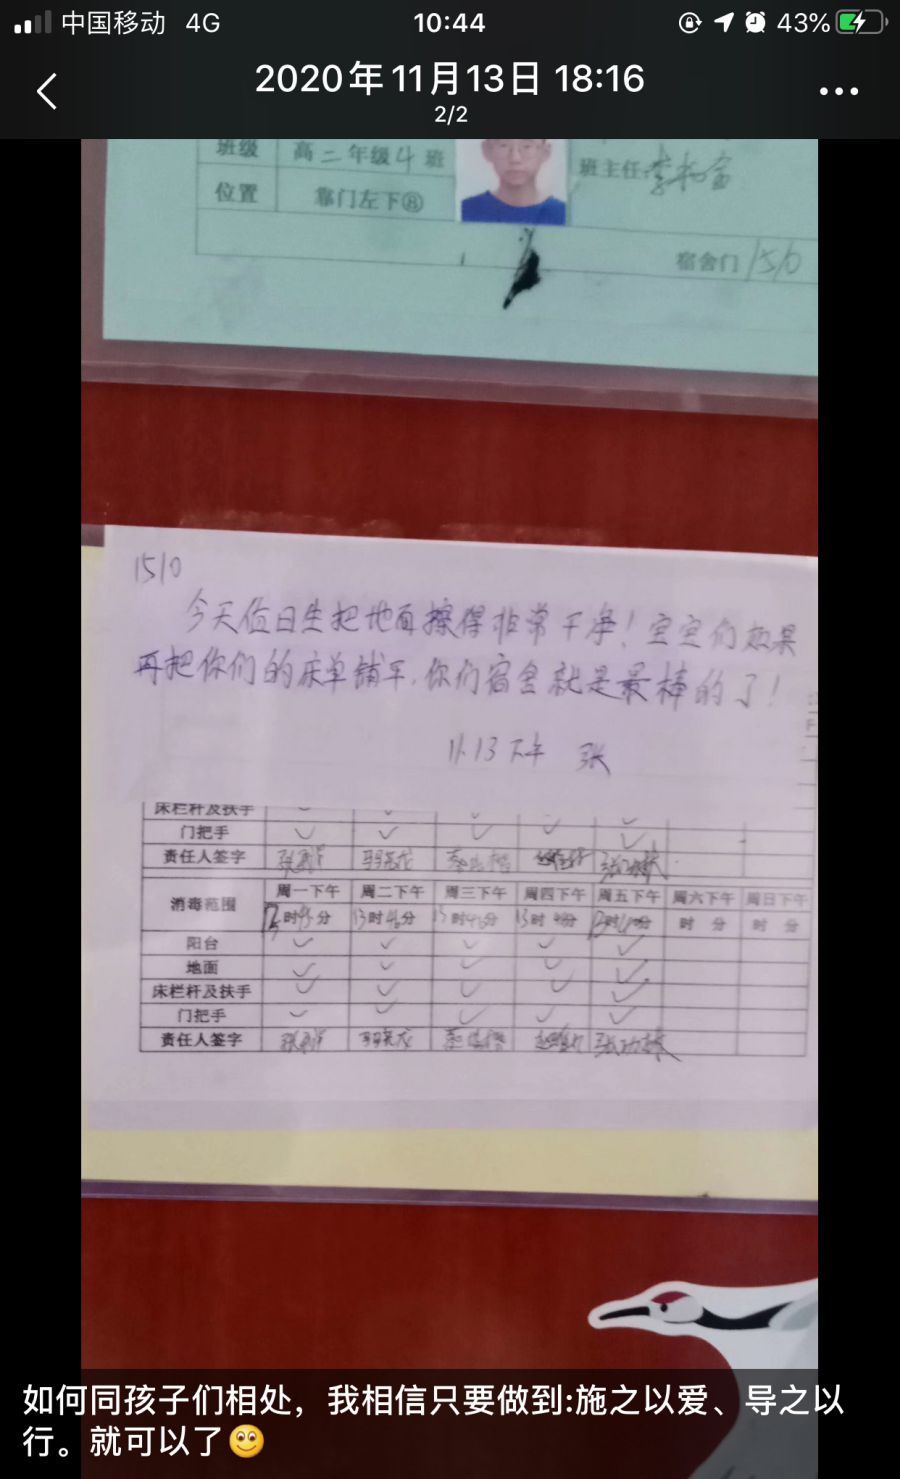 中国移动 4G 10:44 43%
2020年11月13日 18:16
2/2
班级 高二年级4班 班主任:
位置 靠门左下⑧
宿舍门 1510
1510
今天值日生把地面擦得非常干净！宝宝们如果
再把你们的床单铺平，你们宿舍就是最棒的了！
11.13下午 张
床栏杆及扶手
门把手
责任人签字
消毒范围 周一下午 周二下午 周三下午 周四下午 周五下午 周六下午 周日下午
时 分 13时46分 13时46分 13时 分 时 分 时 分 时 分
阳台
地面
床栏杆及扶手
门把手
责任人签字
如何同孩子们相处，我相信只要做到:施之以爱、导之以
行。就可以了